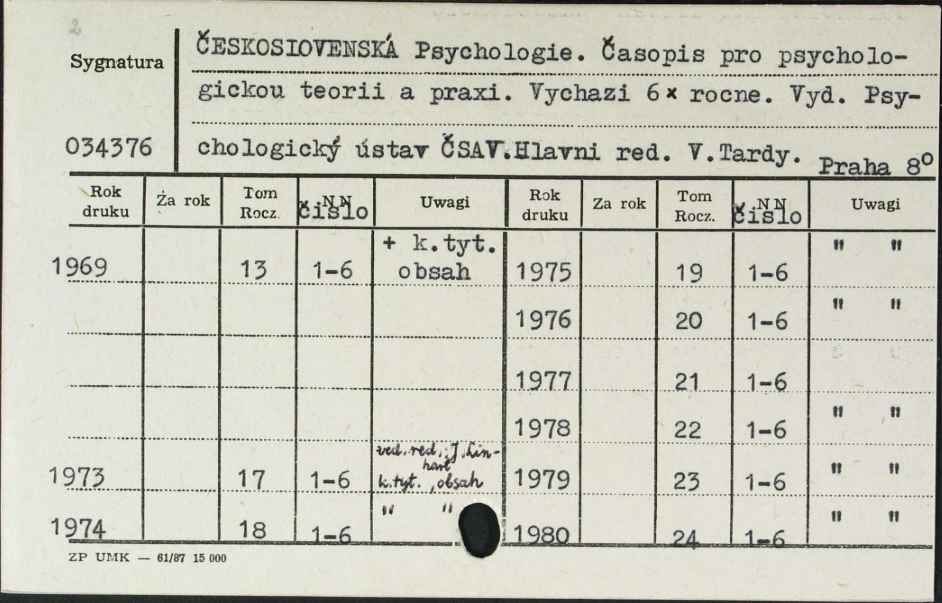 2
Sygnatura
ČESKOSIOVENSKÁ Psychologie. Časopis pro psycholo-
gickou teorii a praxi. Vychazi 6× rocne. Vyd. Psy-
034376 chologický ústav ČSAV.Hlavni red. V.Tardy. Praha 8°
Rok druku Za rok Tom Rocz. NN čislo Uwagi Rok druku Za rok Tom Rocz. NN čislo Uwagi
1969 13 1-6 + k.tyt. obsah 1975 19 1-6 " "
1976 20 1-6 " "
1977 21 1-6
1978 22 1-6 " "
1973 17 1-6 ved. red. J. Linhart k.tyt., obsah 1979 23 1-6 " "
1974 18 1-6 " " 1980 24 1-6 " "
ZP UMK — 61/87 15 000